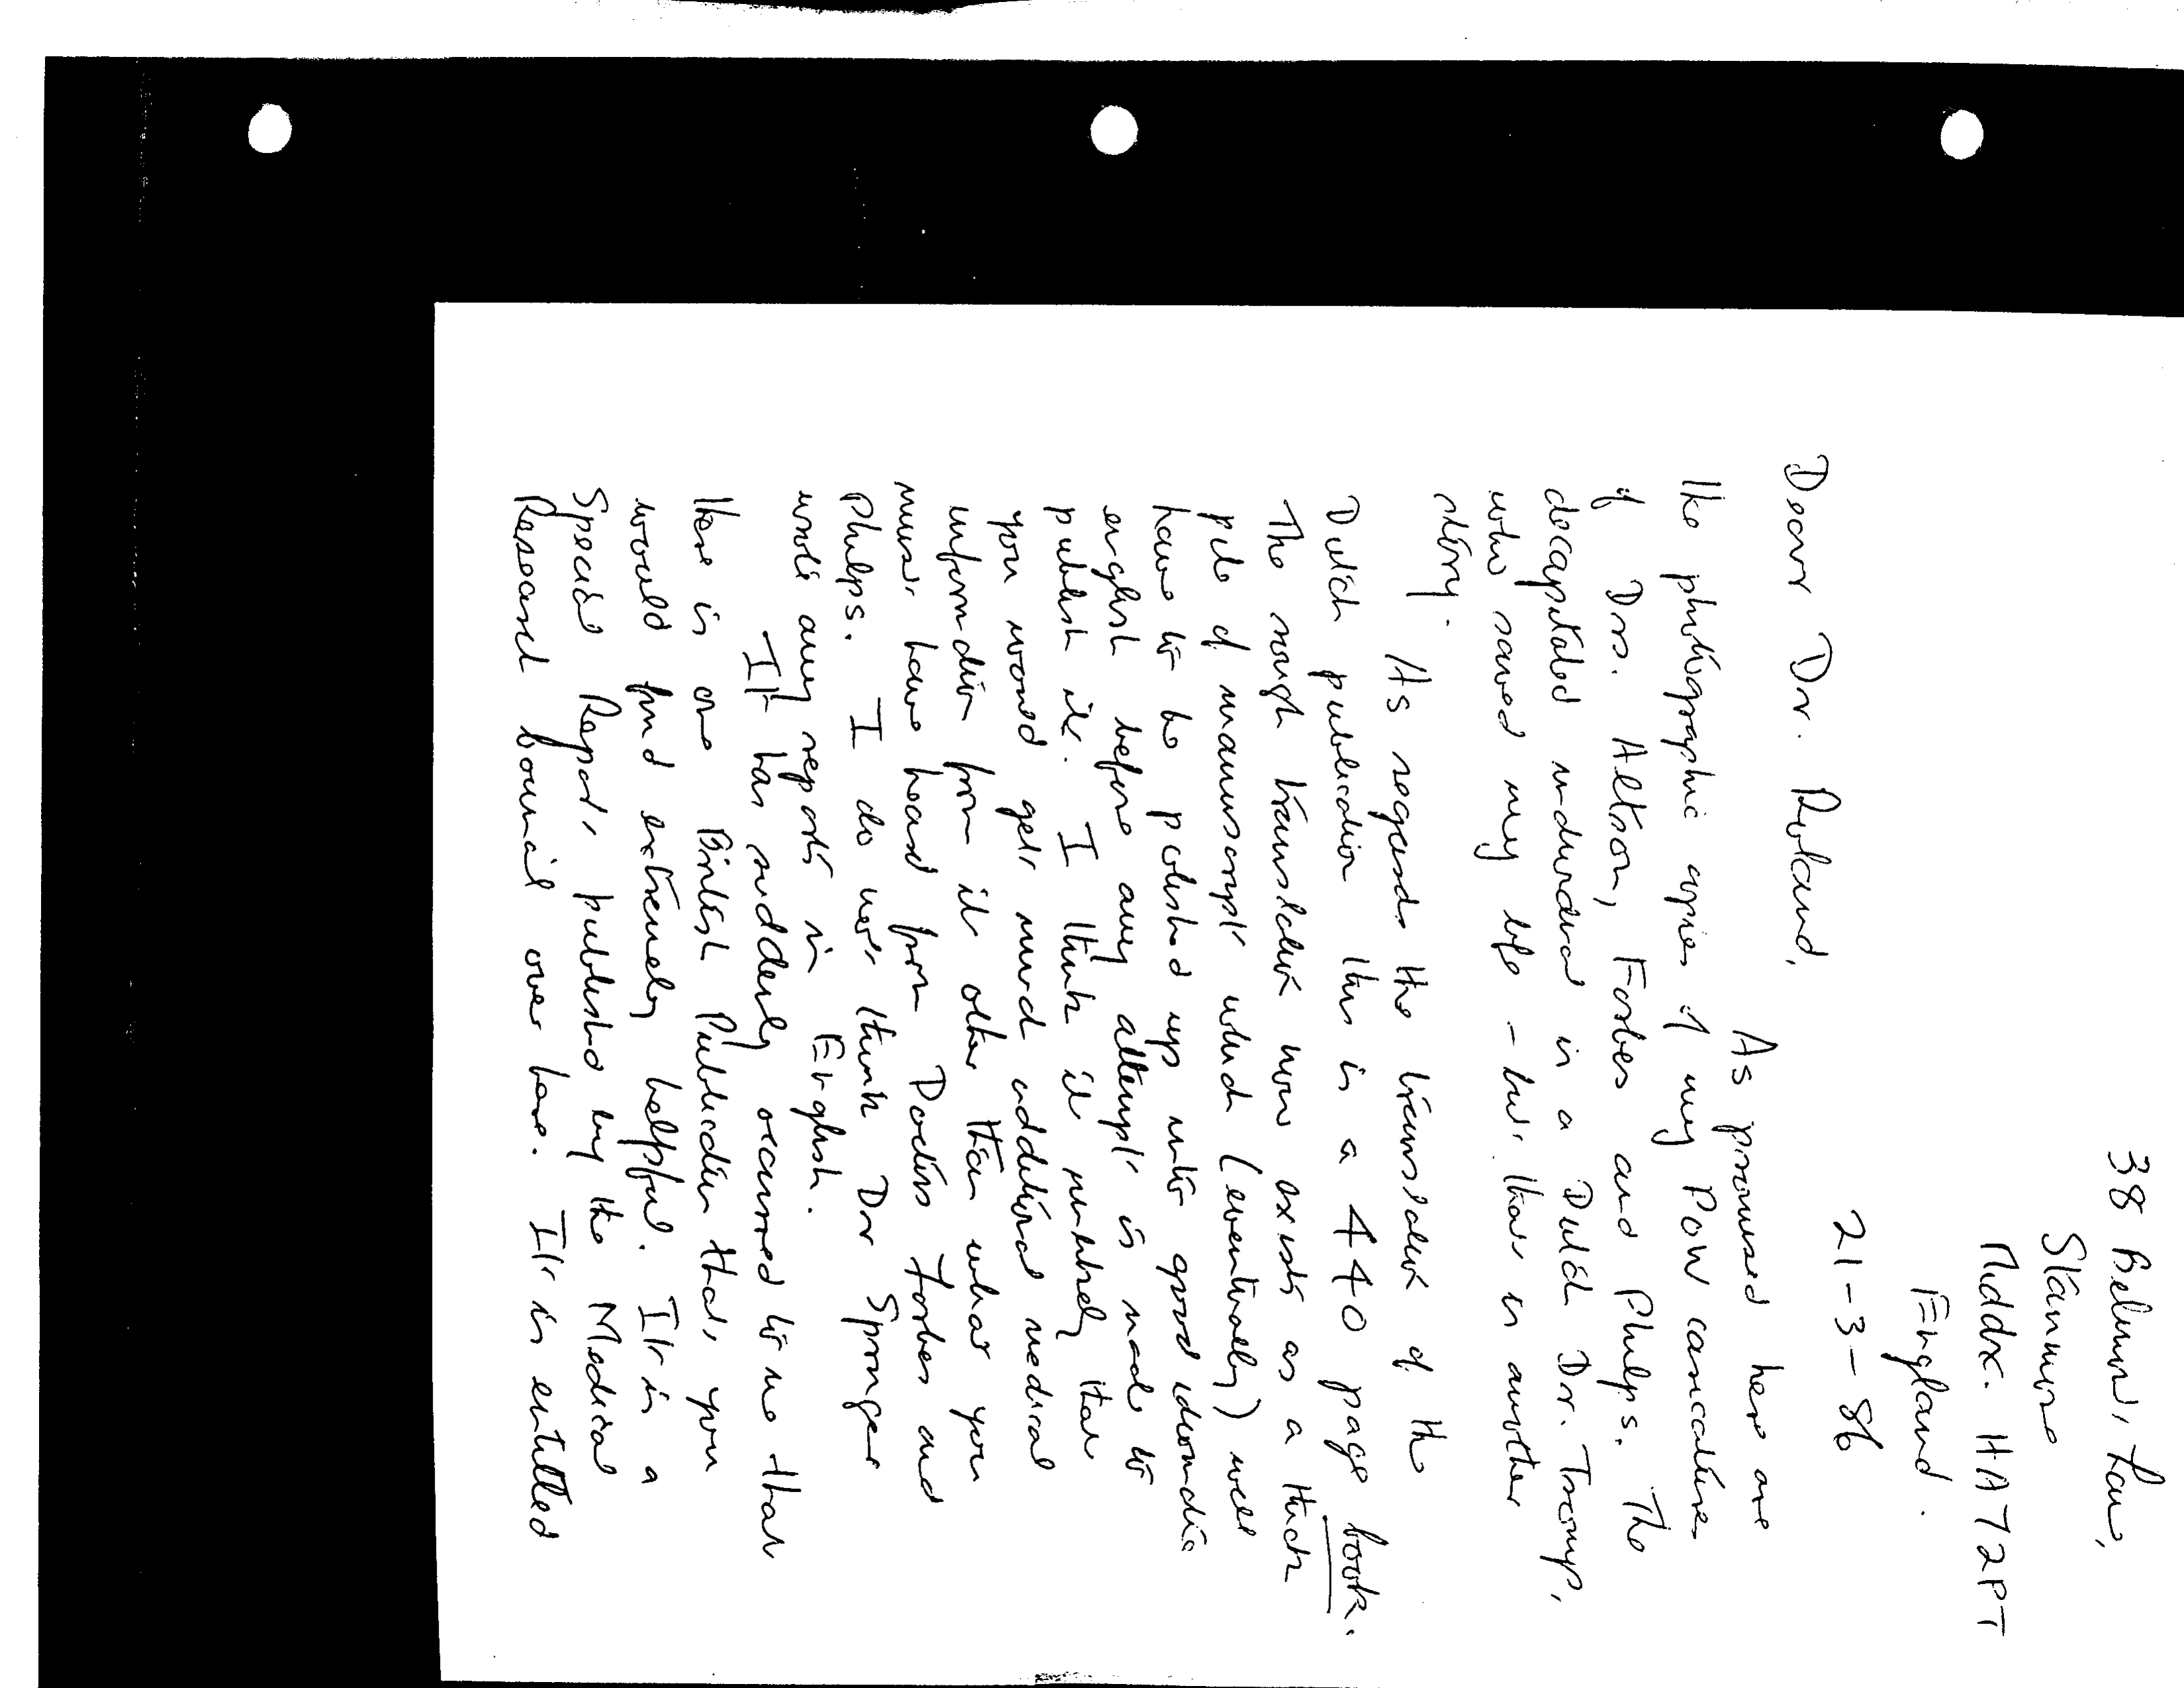 38 Belmont Lane,
Stanmore
Middx. HA7 2PT
England.
21-3-86
Dear Dr. Roland,
As promised here are
the photographic copies of my POW caricatures
of Drs. Altson, Forbes and Phelps. The
decapitated individual is a Dutch Dr. Tromp,
who saved my life - but that is another
story.
As regards the translation of the
Dutch publication this is a 440 page book.
The rough translation now exists as a thick
pile of manuscript which (eventually) will
have to be polished up into good idiomatic
english before any attempt is made to
publish it. I think it unlikely that
you would get much additional medical
information from it other than what you
must have heard from Doctors Forbes and
Phelps. I do not think Dr Springer
wrote any reports in English.
It has suddenly occurred to me that
there is one British Publication that you
would find extremely helpful. It is a
Special Report published by the Medical
Research Council over here. It is entitled